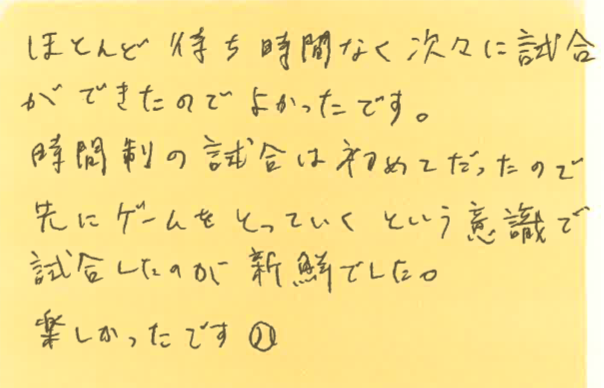 ほとんど待ち時間なく次々に試合
ができたのでよかったです。
時間制の試合は初めてだったので
先にゲームをとっていくという意識で
試合したのが新鮮でした。
楽しかったです